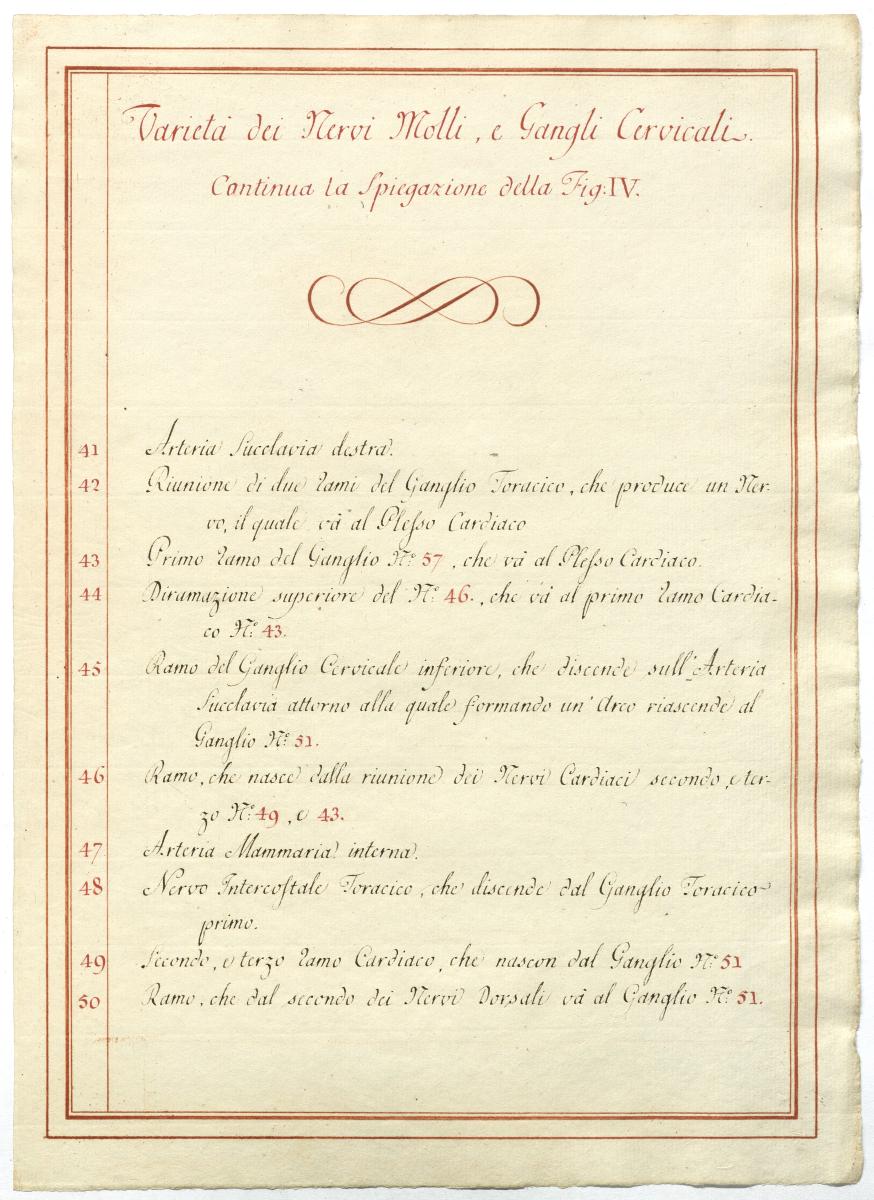 Varietà dei Nervi Molli, e Gangli Cervicali.
Continua la Spiegazione della Fig: IV.
41 Arteria Succlavia destra.
42 Riunione di due rami del Ganglio Toracico, che produce un Ner-
vo, il quale và al Plesso Cardiaco
43 Primo ramo del Ganglio N.º 57, che và al Plesso Cardiaco.
44 Diramazione superiore del N.º 46., che và al primo ramo Cardia-
co N.º 43.
45 Ramo del Ganglio Cervicale inferiore, che discende sull'Arteria
Succlavia attorno alla quale formando un' Arco riascende al
Ganglio N.º 51.
46 Ramo, che nasce dalla riunione dei Nervi Cardiaci secondo, e ter-
zo N.º 49, e 43.
47 Arteria Mammaria interna.
48 Nervo Intercostale Toracico, che discende dal Ganglio Toracico
primo.
49 Secondo, e terzo ramo Cardiaco, che nascon dal Ganglio N.º 51
50 Ramo, che dal secondo dei Nervi Dorsali và al Ganglio N.º 51.